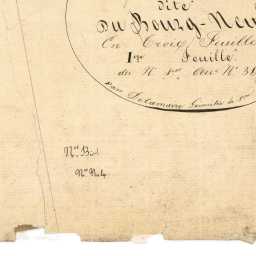 dite
Du Bourg-Neu
En Trois Feuille
1ere Feuille.
du N. 1er au N. 3
par Delamare Géomètre de 1ere